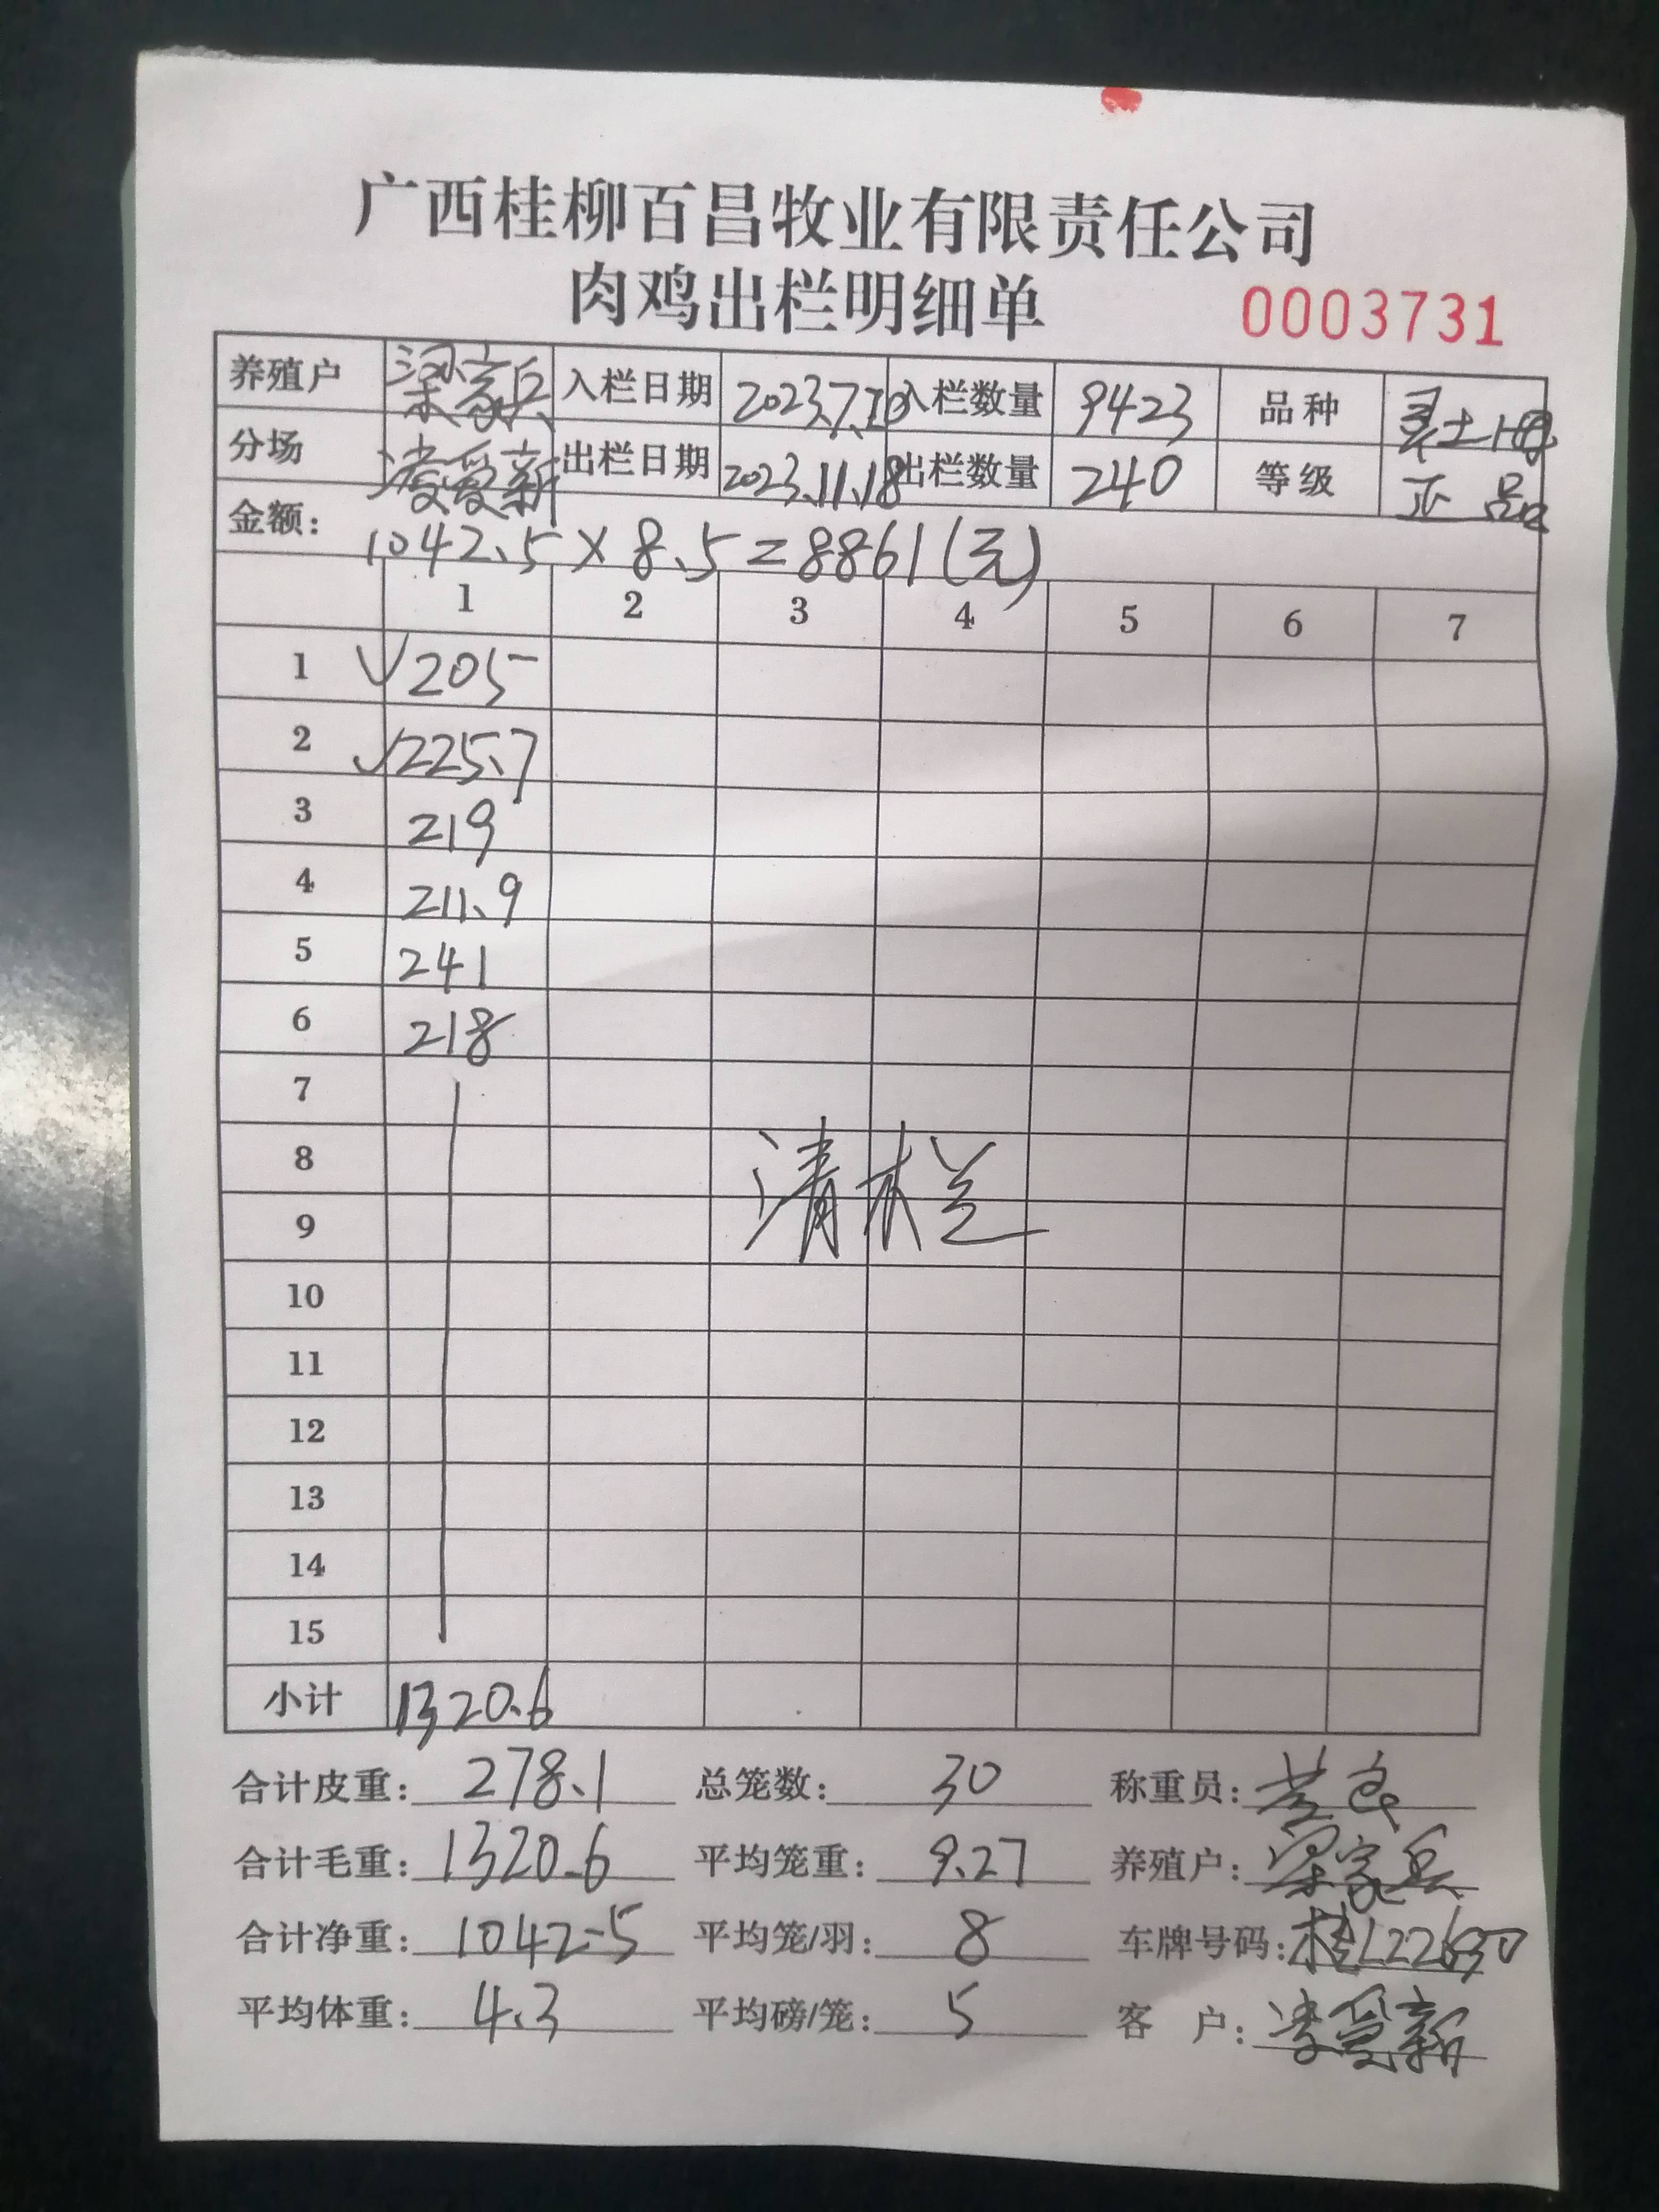 广西桂柳百昌牧业有限责任公司
肉鸡出栏明细单 0003731
养殖户 梁家兵 入栏日期 2023.7.20 入栏数量 9423 品种 灵土1号
分场 凌爱新 出栏日期 2023.11.18 出栏数量 240 等级 正品
金额: 1042.5×8.5=8861(元)
1 2 3 4 5 6 7
1 √205
2 √225.7
3 219
4 211.9
5 241
6 218
7
8 清栏
9
10
11
12
13
14
15
小计 1320.6
合计皮重: 278.1 总笼数: 30 称重员:
合计毛重: 1320.6 平均笼重: 9.27 养殖户: 梁家兵
合计净重: 1042.5 平均笼/羽: 8 车牌号码: 桂L22630
平均体重: 4.3 平均磅/笼: 5 客户: 凌爱新